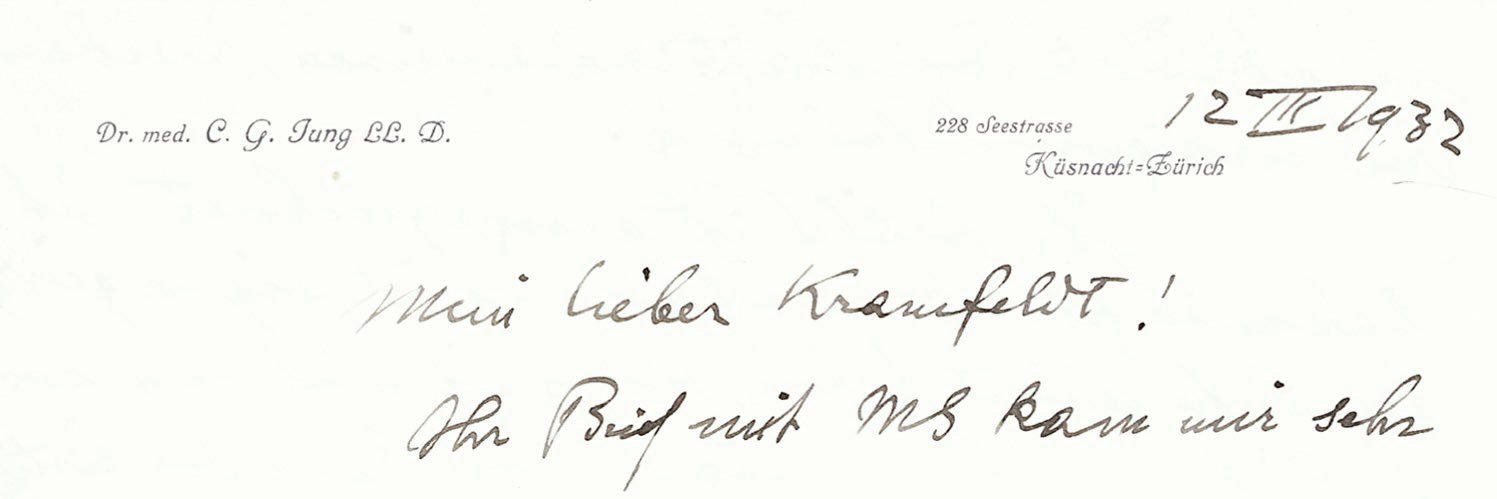 Dr. med. C. G. Jung LL. D.
228 Seestrasse
Küsnacht=Zürich
12 III 1932
Mein lieber Kranefeldt!
Ihr Brief mit MS kam mir sehr